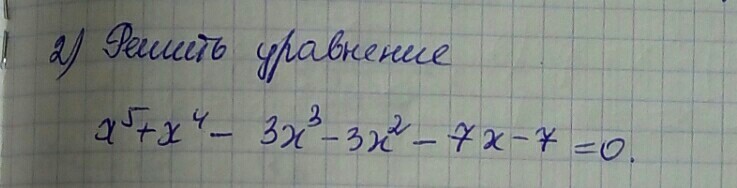 2) Решить уравнение
x⁵+x⁴- 3x³-3x²-7x-7=0.